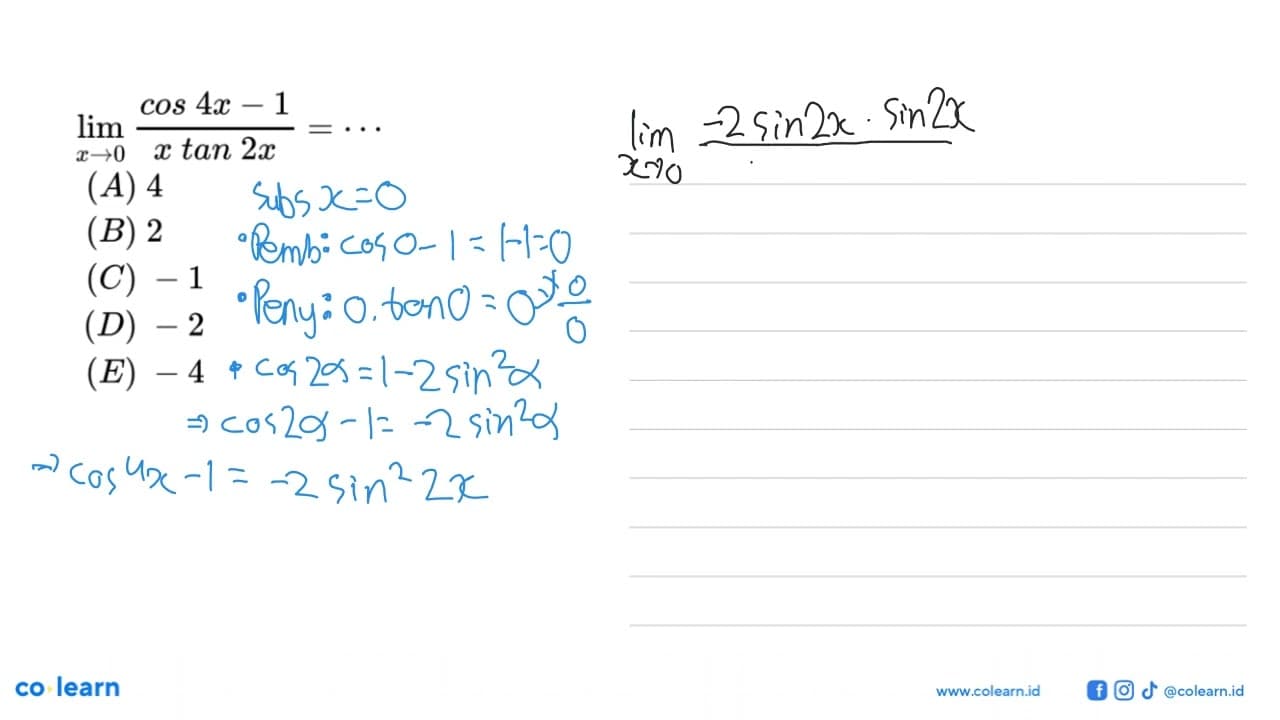 lim x→0 (cos 4x − 1)/(x tan 2x) = ⋯
(A) 4
(B) 2
(C) − 1
(D) − 2
(E) − 4
subs x=0
• Pemb: cos 0 - 1 = 1-1=0
• Peny: 0. tan 0 = 0 → 0/0
* cos 2α = 1 - 2 sin²α
⇒ cos 2α - 1 = -2 sin²α
⇒ cos 4x - 1 = -2 sin² 2x
lim x→0 -2 sin 2x . sin 2x
co·learn
www.colearn.id
@colearn.id